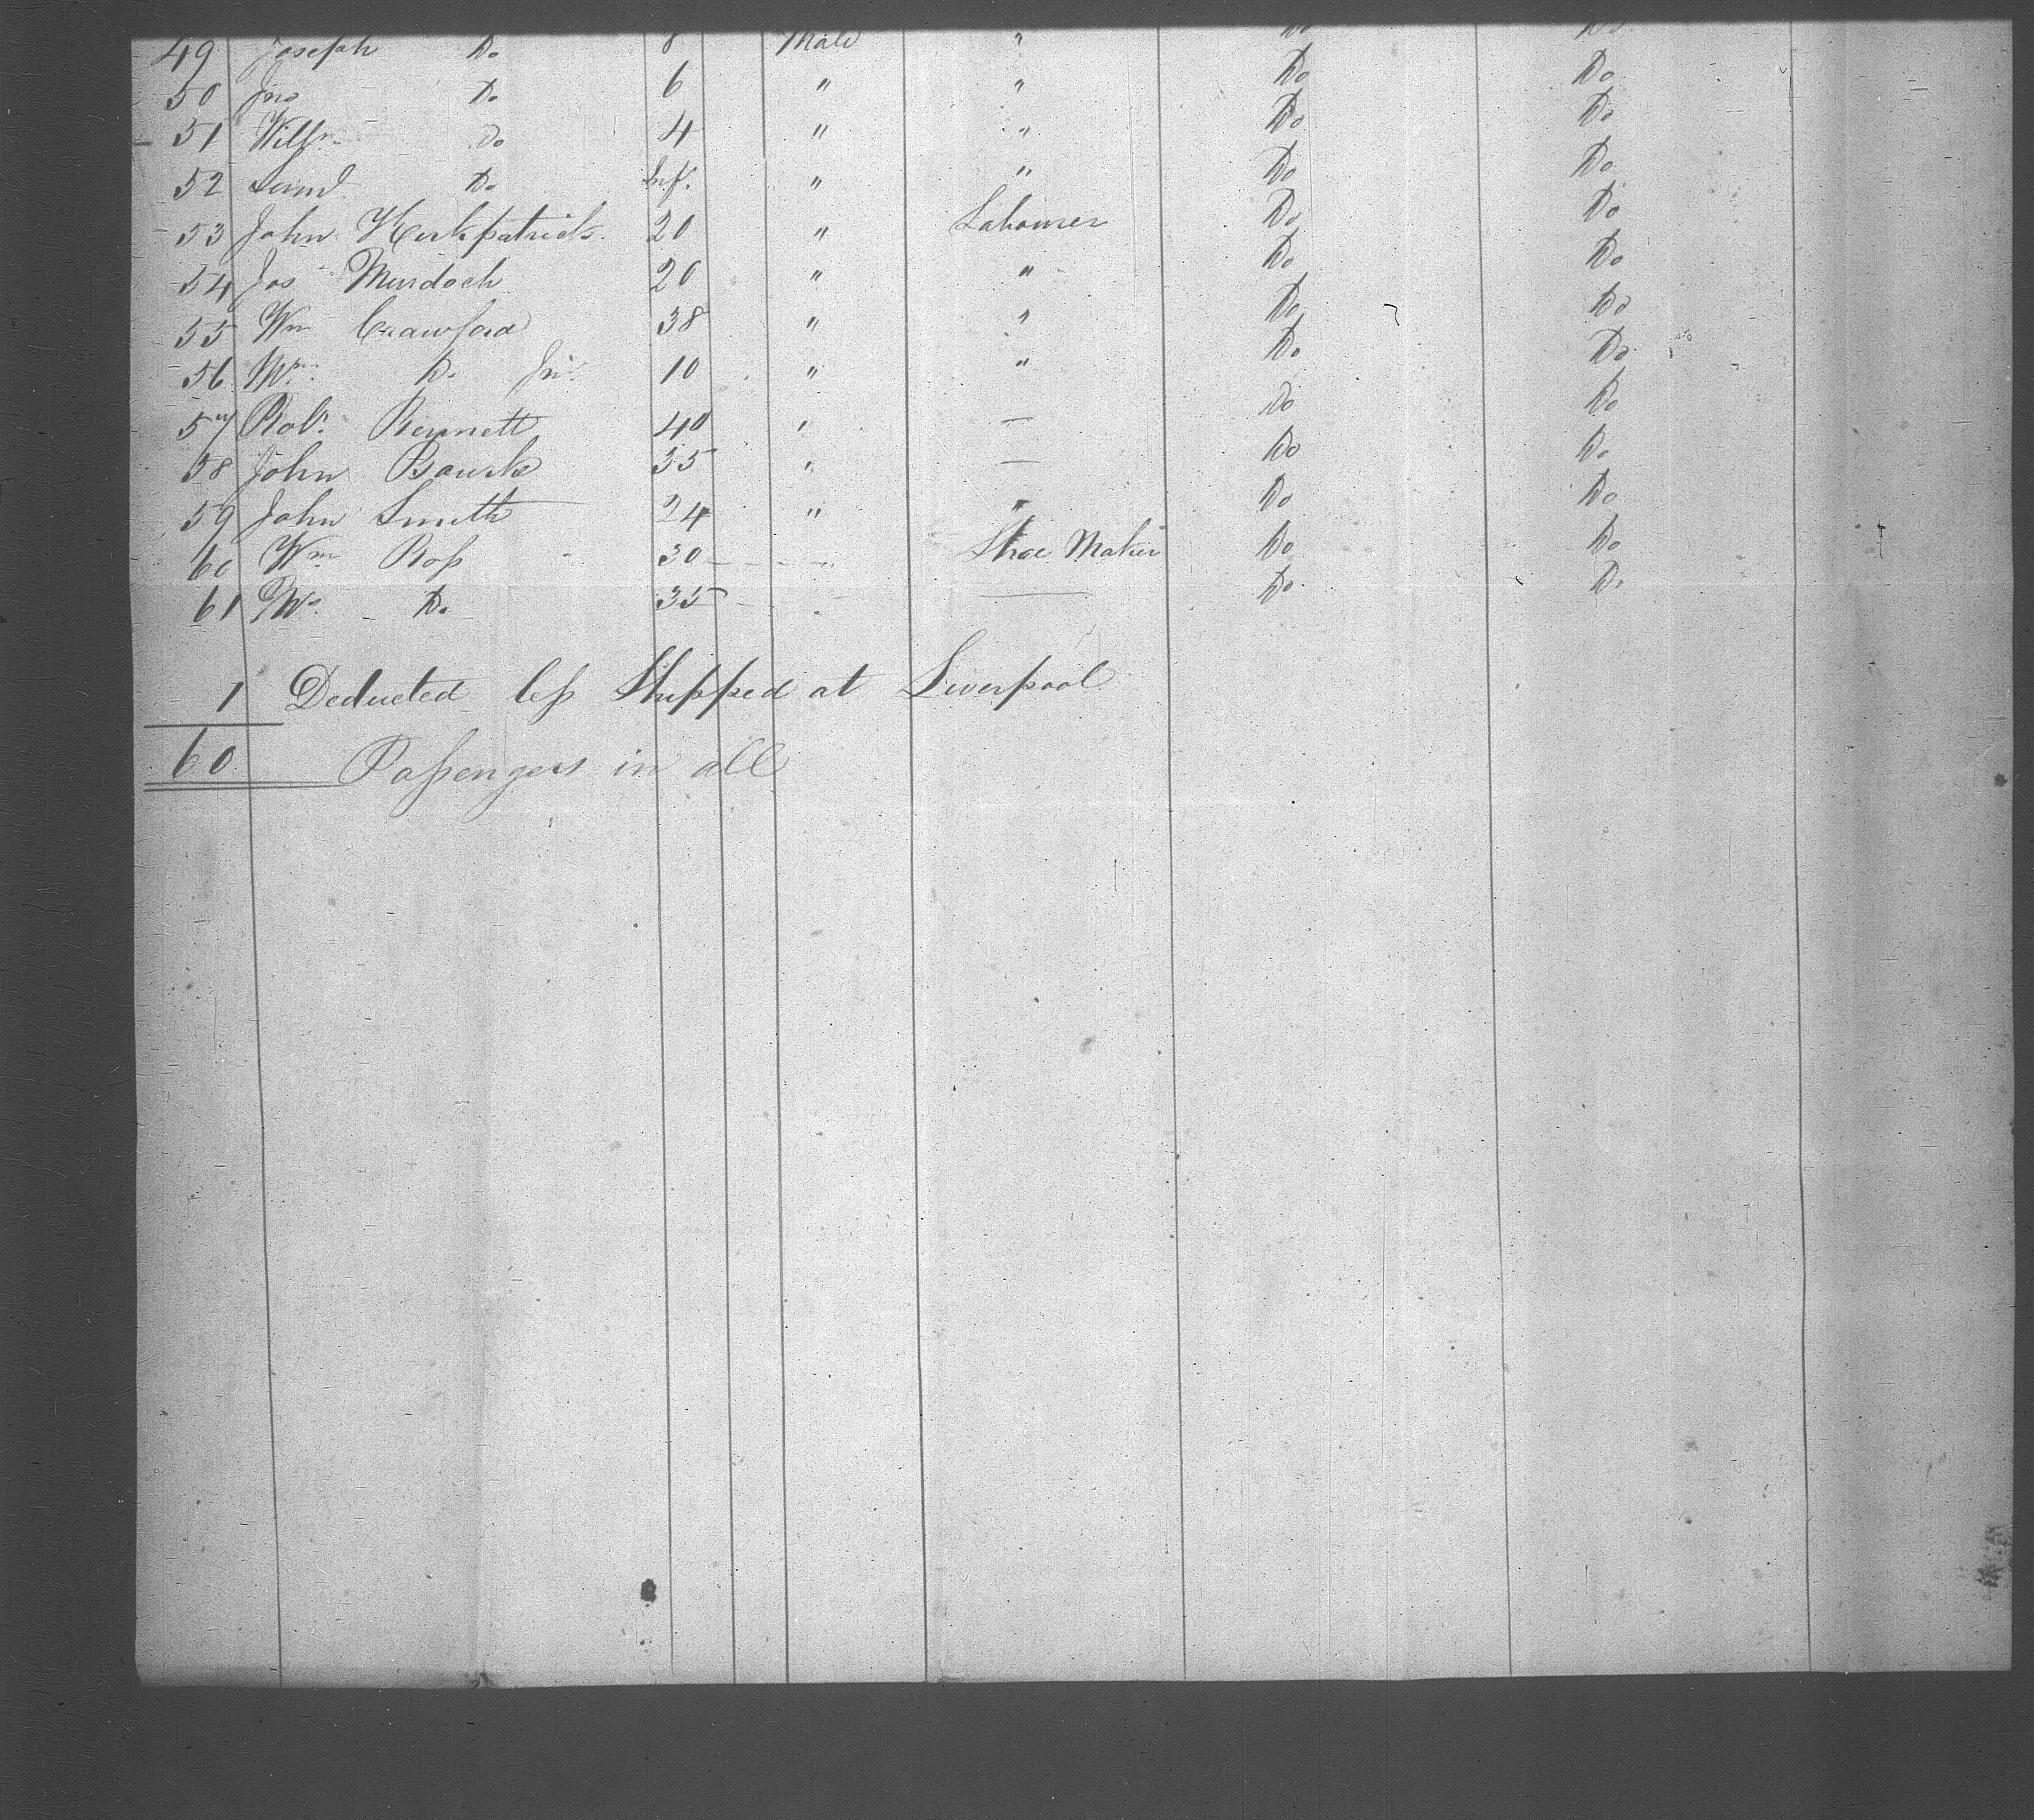 49 Joseph Do 8 Male " Do Do
50 Jno Do 6 " " Do Do
51 Willm Do 4 " " Do Do
52 Saml Do Inf. " " Do Do
53 John Kirkpatrick 20 " Labourer Do Do
54 Jas Murdoch 20 " " Do Do
55 Wm Crawford 38 " " Do Do
56 Wm Do Jr. 10 " " Do Do
57 Robt. Bennett 40 " — Do Do
58 John Bourke 35 " — Do Do
59 John Smith 24 " " Do Do
60 Wm Ross 30 " Shoe Maker Do Do
61 Do 35 — Do Do
1 Deducted less Shipped at Liverpool
60 Passengers in all